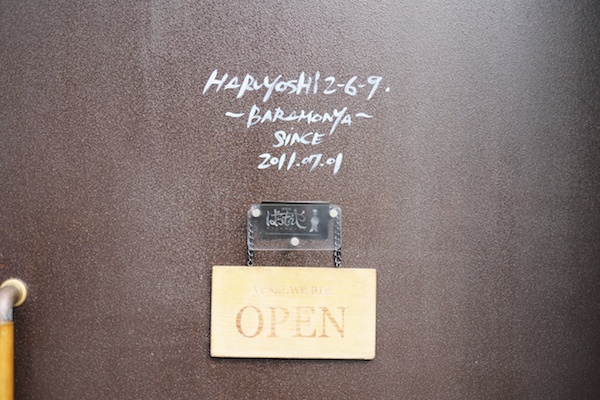 HARUYOSHI 2-6-9.
~BARAMONYA~
SINCE
2011.07.01
Yes...we are
OPEN